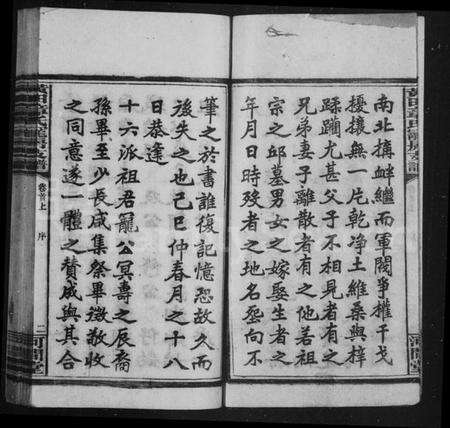 南北搆衅繼而軍閥爭權干戈
擾攘無一片乾净土維桑與梓
蹂躪尤甚父子不相見者有之
兄弟妻子離散者有之他若祖
宗之邱墓男女之嫁娶生者之
年月日時歿者之地名葬向不
筆之於書誰復記憶恐故久而
後失之也己巳仲春月之十八
日恭逢
十六派祖君寵公冥壽之辰裔
孫畢至少長咸集祭畢徵收
之同意遂一體之賛成與其合
卷首上
序
二
河間堂